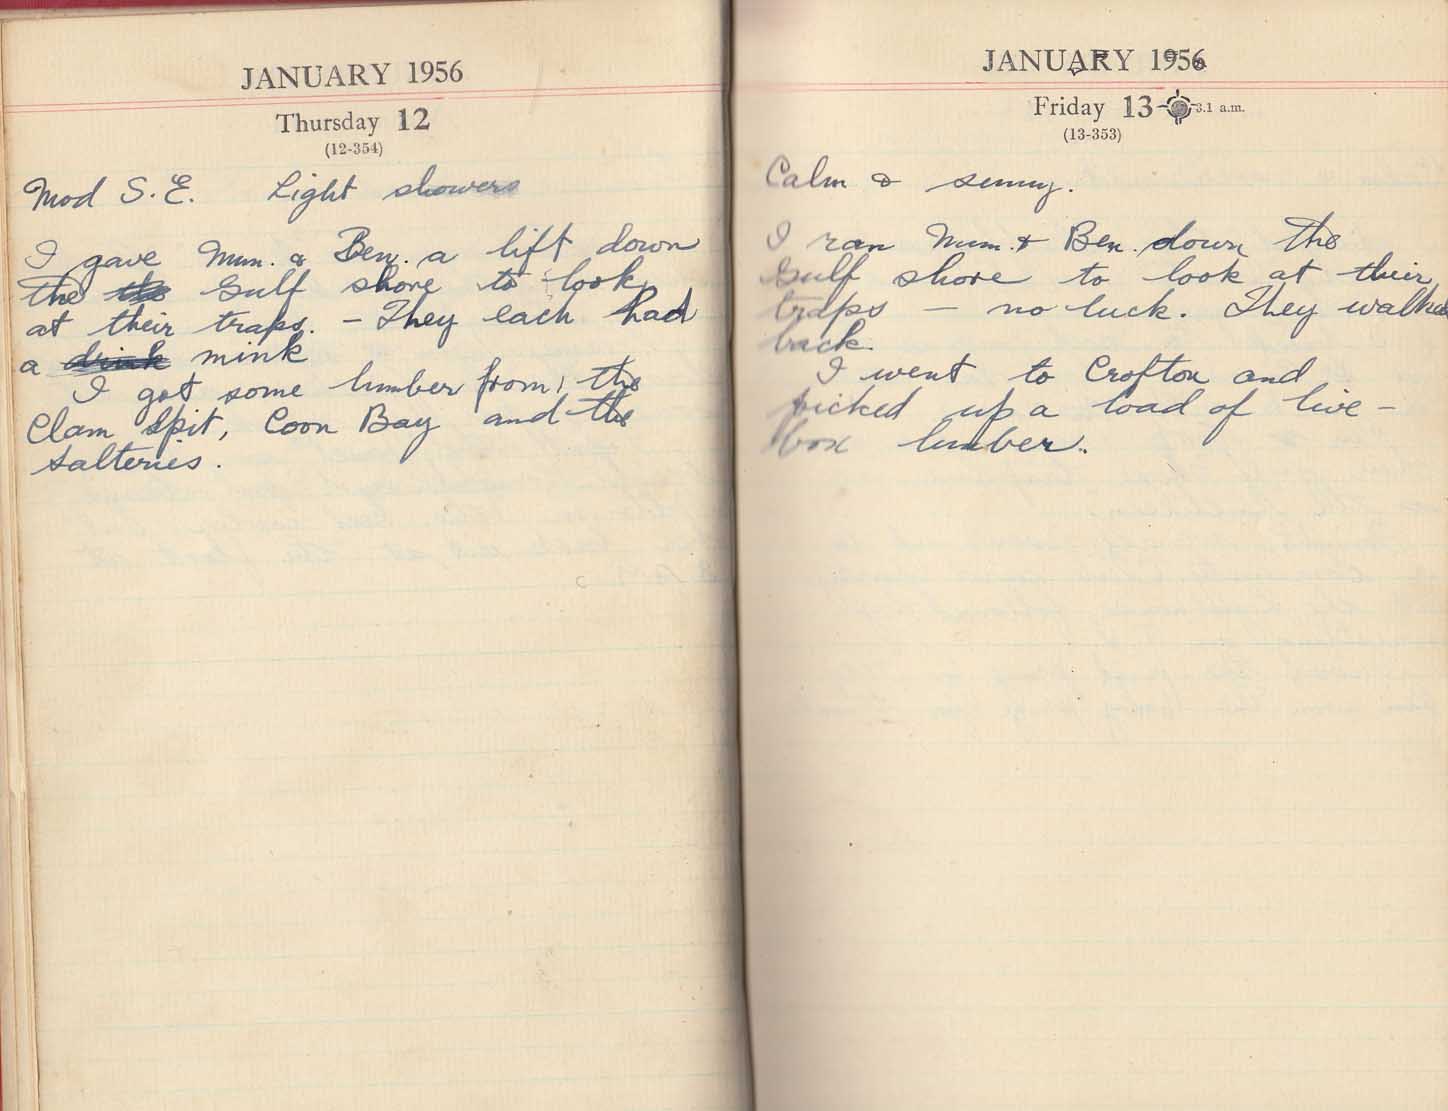 JANUARY 1956
Thursday 12
(12-354)
Mod S.E. Light showers
I gave Mum. & Ben. a lift down
the the Gulf shore to look
at their traps. - They each had
a drink mink
I got some lumber from, the
Clam Spit, Coon Bay and the
Salteries.
JANUARY 1956
Friday 13 3.1 a.m.
(13-353)
Calm & sunny.
I ran Mum. & Ben. down the
Gulf shore to look at their
traps - no luck. They walked
back.
I went to Crofton and
picked up a load of live-
box lumber.